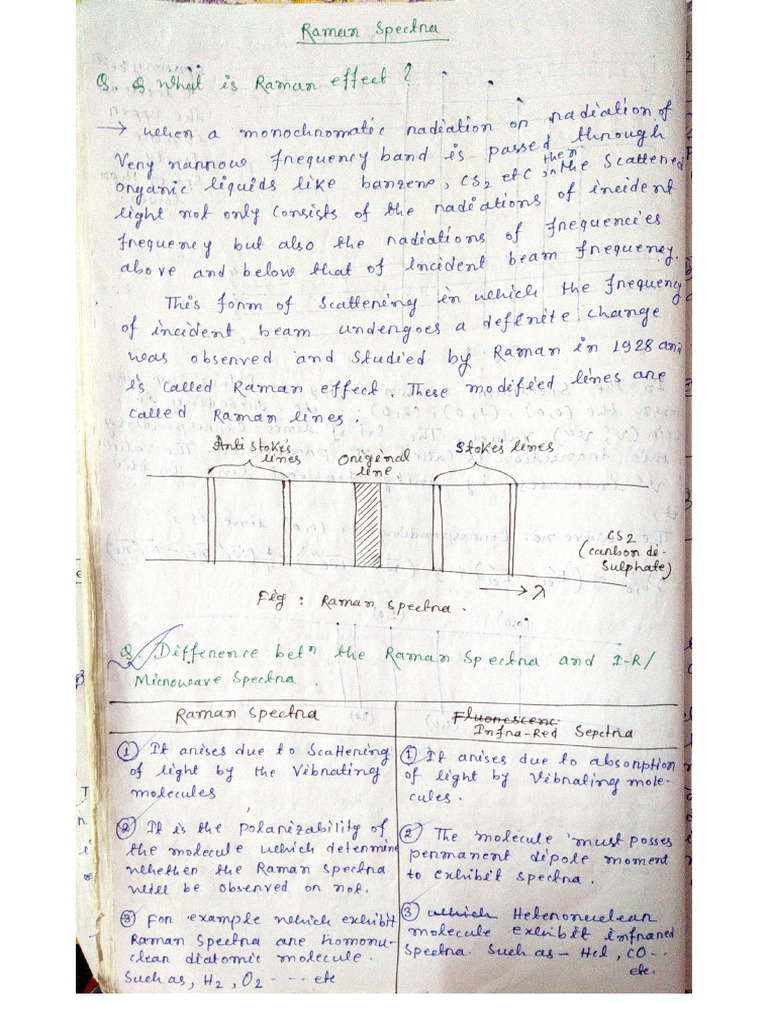 Raman Spectra
Q. Q What is Raman effect ?
→ when a monochromatic radiation or radiation of
Very narrow frequency band is passed through
organic liquids like banzene, CS2 etc then in the Scattered
light not only consists of the radiations of incident
frequency but also the radiations of frequencies
above and below that of incident beam frequency.
This form of scattering in which the frequency
of incident beam undergoes a definite change
was observed and studied by Raman in 1928 and
is called Raman effect. These modified lines are
called Raman lines.
Anti Stoke's lines
Original line
Stoke's lines
CS2
(carbon di-
Sulphate)
→ λ
Fig : Raman Spectra.
Q. Difference betn the Raman Spectra and I-R/
Microwave Spectra.
Raman Spectra
Fluorescenc
Infra-Red Sepctra
① It arises due to Scattering
of light by the Vibrating
molecules
② It is the polarizability of
the molecule which determine
whether the Raman spectra
will be observed or not.
③ For example which exhibit
Raman Spectra are homonu-
clear diatomic molecule.
Such as, H2, O2 ---- etc
① It arises due to absorption
of light by Vibrating mole-
cules.
② The molecule must posses
permanent dipole moment
to exhibit spectra.
③ which Heteronuclear
molecule exhibit infrared
Spectra. Such as - Hcl, CO--
etc.